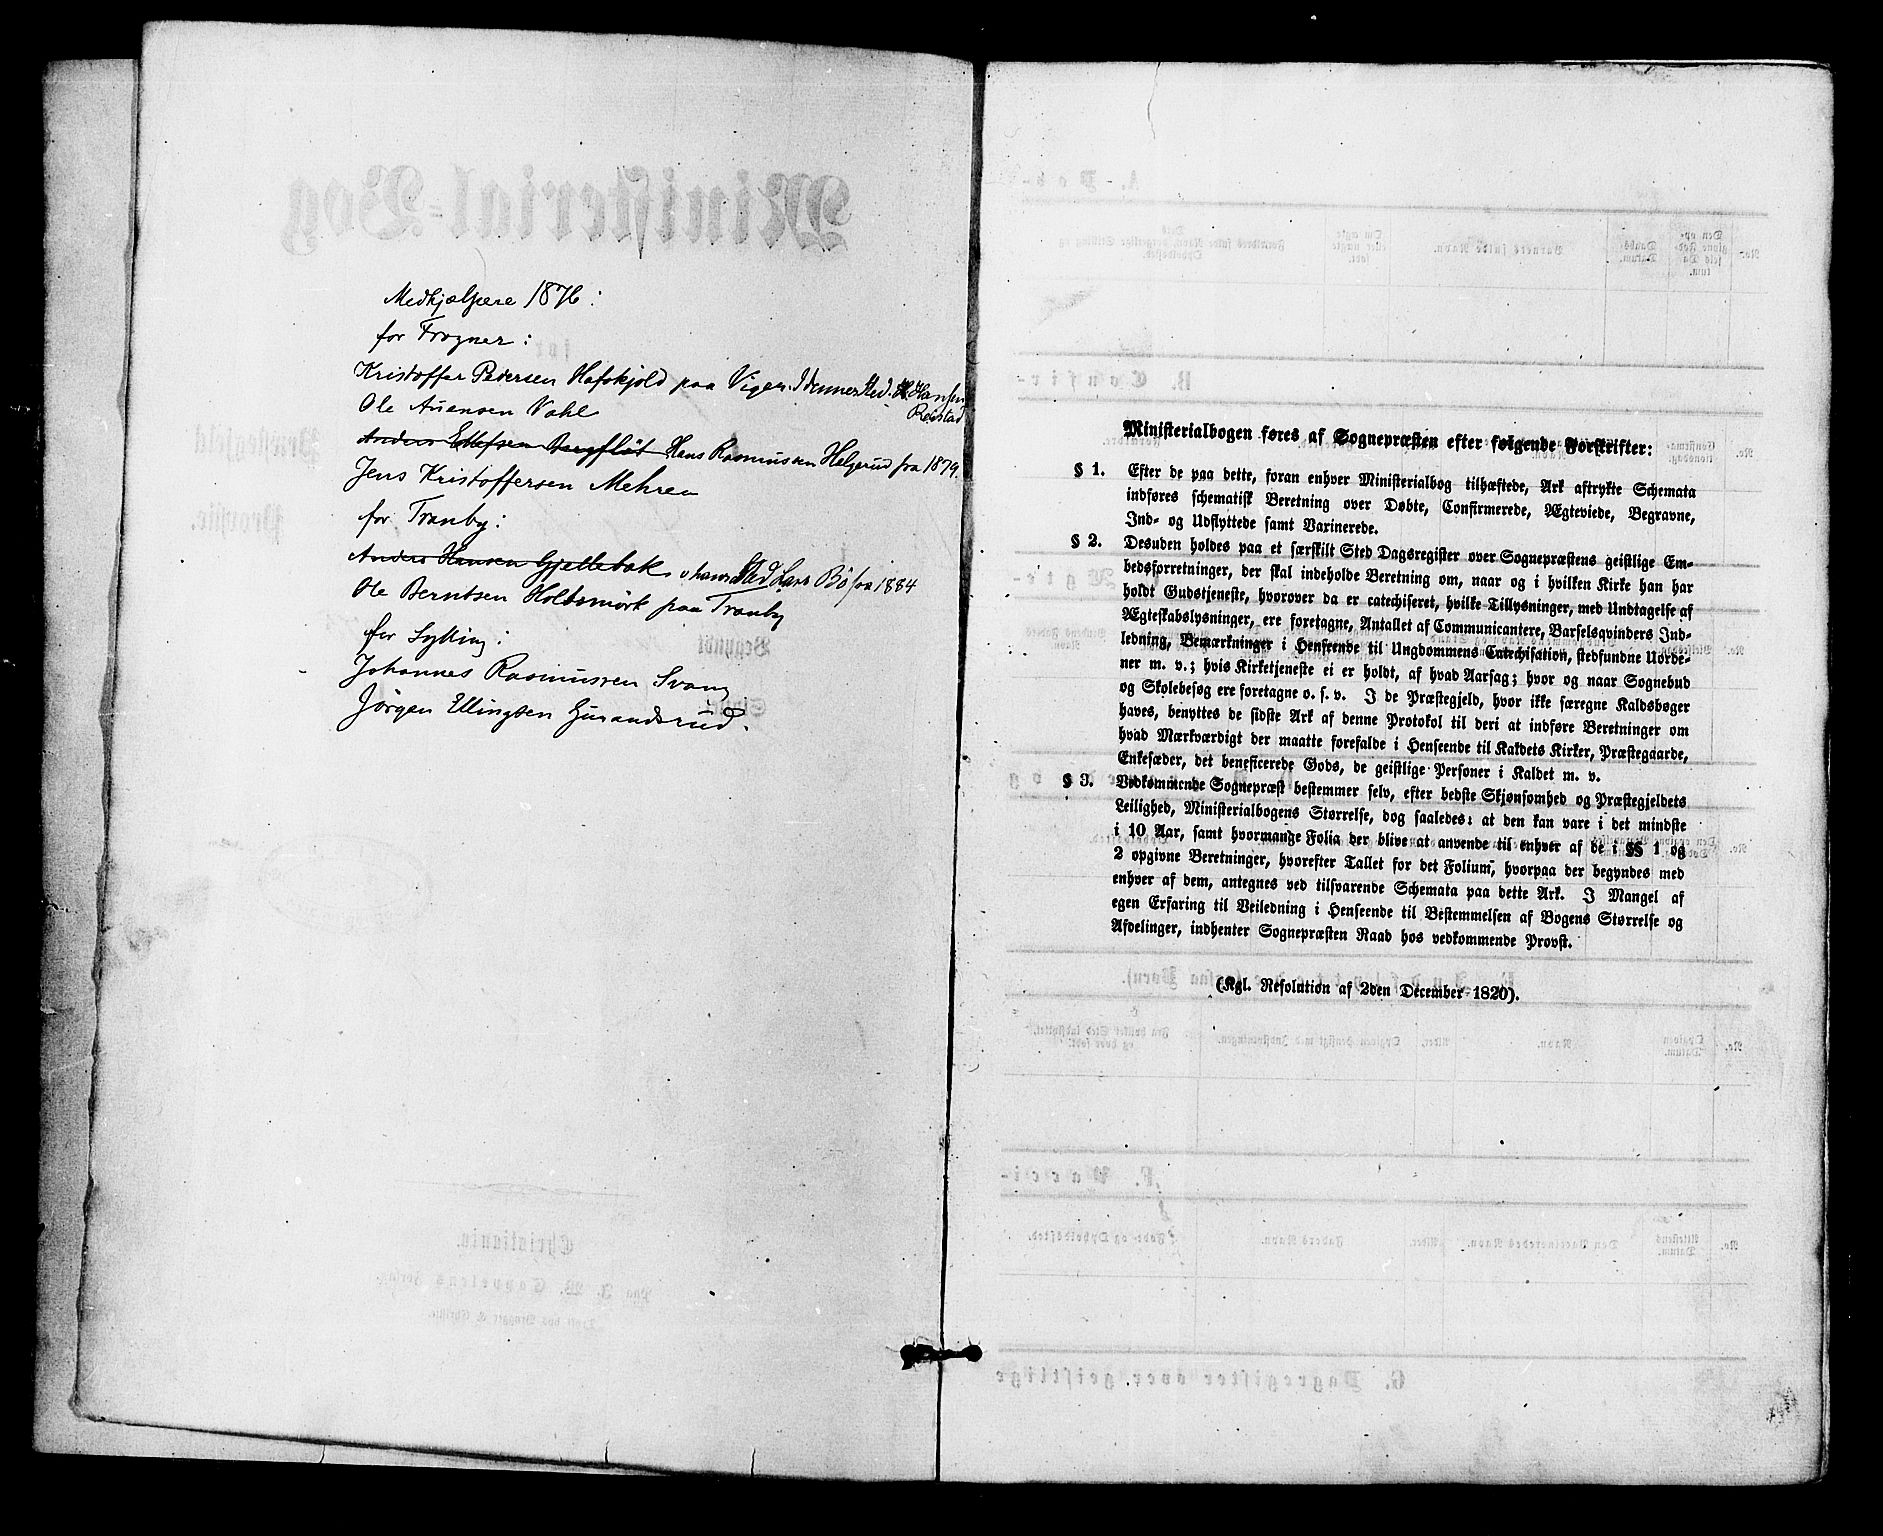 Medhjælpere 1876:
for Frogner:
Kristoffer Pedersen Hafskjold paa Vigen. I dennes Sted. H. Hansen
Reistad
Ole Auensen Vahl
Anders Ellefsen Bergfløt Hans Rasmussen Helgerud fra 1879.
Jens Kristoffersen Mehren
for Tranby:
Anders Hansen Gjellebæk i hans Sted Lars Bö fra 1884
Ole Berntsen Holtsmörk paa Tranby
for Sylling:
Johannes Rasmussen Svang
Jörgen Ellingsen Gurandsrud.
Ministerialbogen føres af Sognepræsten efter følgende Forskrifter:
§ 1. Efter de paa dette, foran enhver Ministerialbog tilhæftede, Ark aftrykte Schemata
indføres schematisk Beretning over Døbte, Confirmerede, Ægteviede, Begravne,
Ind- og Udflyttede samt Vaxinerede.
§ 2. Desuden holdes paa et særskilt Sted Dagsregister over Sognepræstens geistlige Em-
bedsforretninger, der skal indeholde Beretning om, naar og i hvilken Kirke han har
holdt Gudstjeneste, hvorover da er catechiseret, hvilke Tillysninger, med Undtagelse af
Ægteskabslysninger, ere foretagne, Antallet af Communicantere, Barselqvinders Ind-
ledning, Bemærkninger i Henseende til Ungdommens Catechisation, stedfundne Uorde-
ner m. v.; hvis Kirketjeneste ei er holdt, af hvad Aarsag; hvor og naar Sognebud
og Skolebesøg ere foretagne o. s. v. I de Præstegjeld, hvor ikke særegne Kaldsbøger
haves, benyttes de sidste Ark af denne Protokol til deri at indføre Beretninger om
hvad Mærkværdigt der maatte forefalde i Henseende til Kaldets Kirker, Præstegaarde,
Enkesæder, det beneficerede Gods, de geistlige Personer i Kaldet m. v.
§ 3. Vedkommende Sognepræst bestemmer selv, efter bedste Skjønsomhed og Præstegjeldets
Leilighed, Ministerialbogens Størrelse, dog saaledes: at den kan vare i det mindste
i 10 Aar, samt hvormange Folia der blive at anvende til enhver af de i §§ 1 og
2 opgivne Beretninger, hvorefter Tallet for det Folium, hvorpaa der begyndes med
enhver af dem, antegnes ved tilsvarende Schemata paa dette Ark. I Mangel af
egen Erfaring til Veiledning i Henseende til Bestemmelsen af Bogens Størrelse og
Afdelinger, indhenter Sognepræsten Raad hos vedkommende Provst.
(Kgl. Resolution af 2den December 1820).